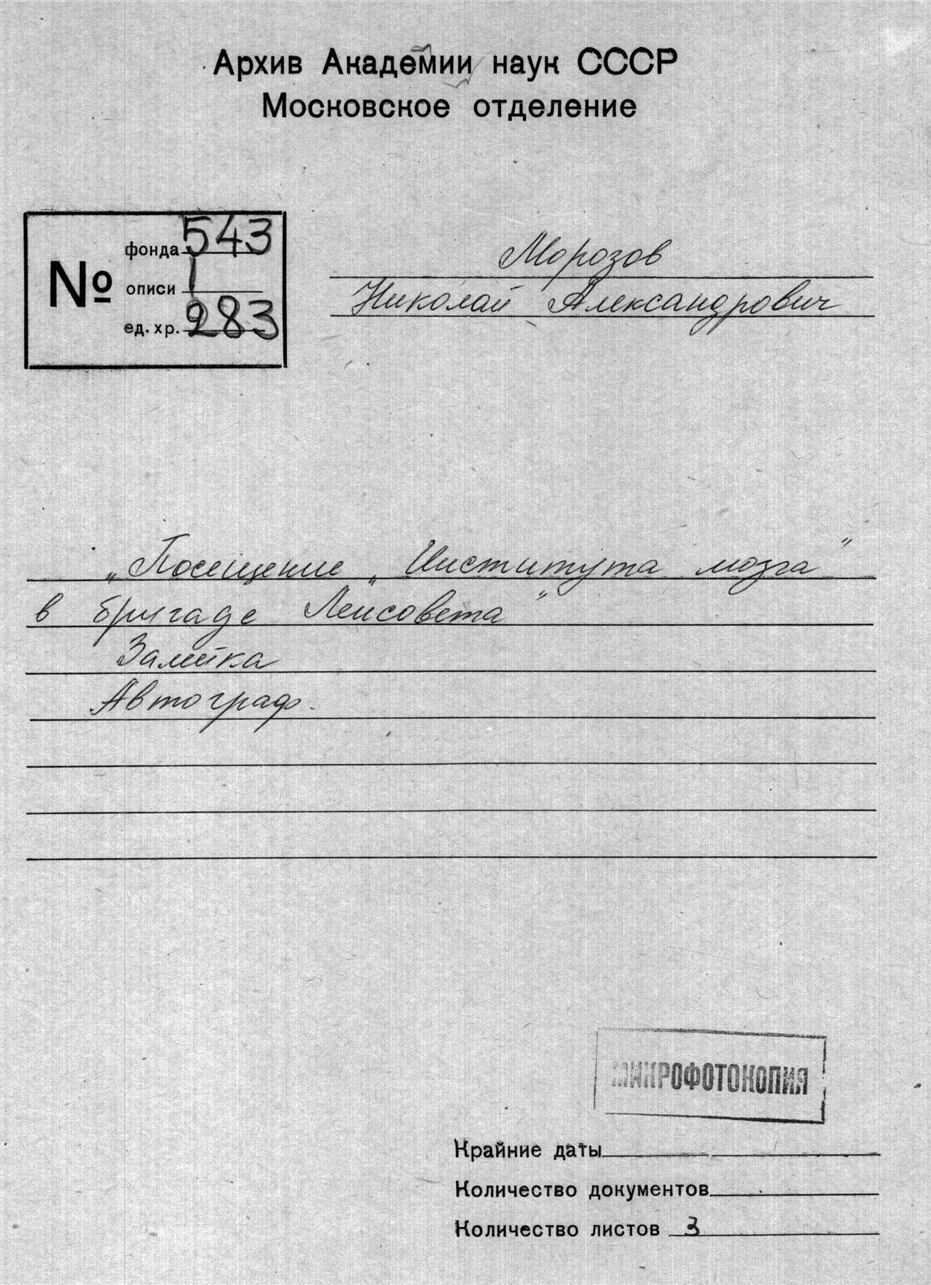 Архив Академии наук СССР
Московское отделение
№
фонда 543
описи 1
ед. хр. 283
Морозов
Николай Александрович
„Посещение „Института мозга"
в бригаде Ленсовета"
Заметка
Автограф.
МИКРОФОТОКОПИЯ
Крайние даты
Количество документов
Количество листов 3